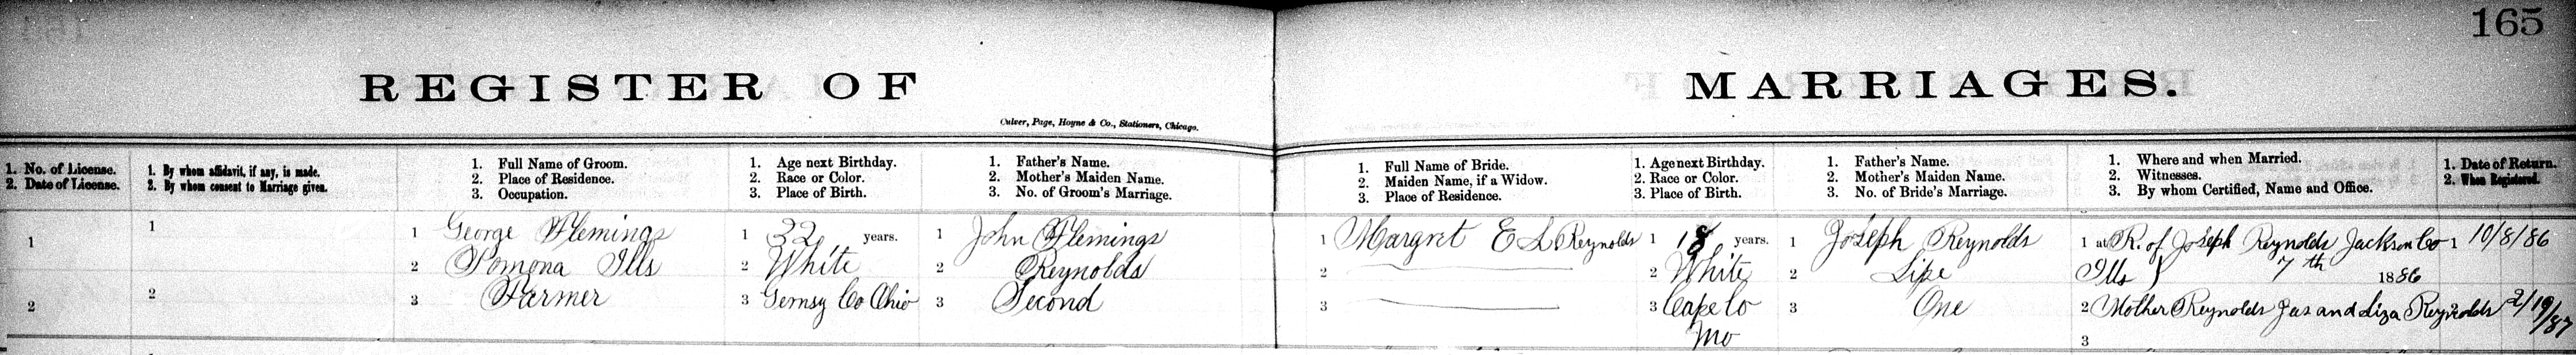 165
REGISTER OF MARRIAGES.
Culver, Page, Hoyne & Co., Stationers, Chicago.
1. No. of License.
2. Date of License.
1. By whom affidavit, if any, is made.
2. By whom consent to Marriage given.
1. Full Name of Groom.
2. Place of Residence.
3. Occupation.
1. Age next Birthday.
2. Race or Color.
3. Place of Birth.
1. Father's Name.
2. Mother's Maiden Name.
3. No. of Groom's Marriage.
1. Full Name of Bride.
2. Maiden Name, if a Widow.
3. Place of Residence.
1. Age next Birthday.
2. Race or Color.
3. Place of Birth.
1. Father's Name.
2. Mother's Maiden Name.
3. No. of Bride's Marriage.
1. Where and when Married.
2. Witnesses.
3. By whom Certified, Name and Office.
1. Date of Return.
2. When Registered.
1
2
1
2
1 George Flemings
2 Pomona Ills
3 Farmer
1 32 years.
2 White
3 Gernsy Co Ohio
1 John Flemings
2 Reynolds
3 Second
1 Margret E L Reynolds
2
3
1 18 years.
2 White
3 Cape Co
Mo
1 Joseph Reynolds
2 Lipe
3 One
1 at R. of Joseph Reynolds Jackson Co
Ills } 7th 1886
2 Mother Reynolds Jas and Liza Reynolds
3
1 10/8/86
2/19/87